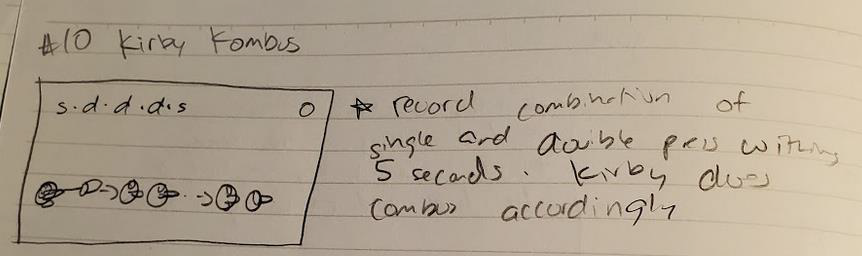 #10 Kirby Kombos
s.d.d.d.s O
* record combination of
single and double press within
5 seconds. Kirby does
combos accordingly